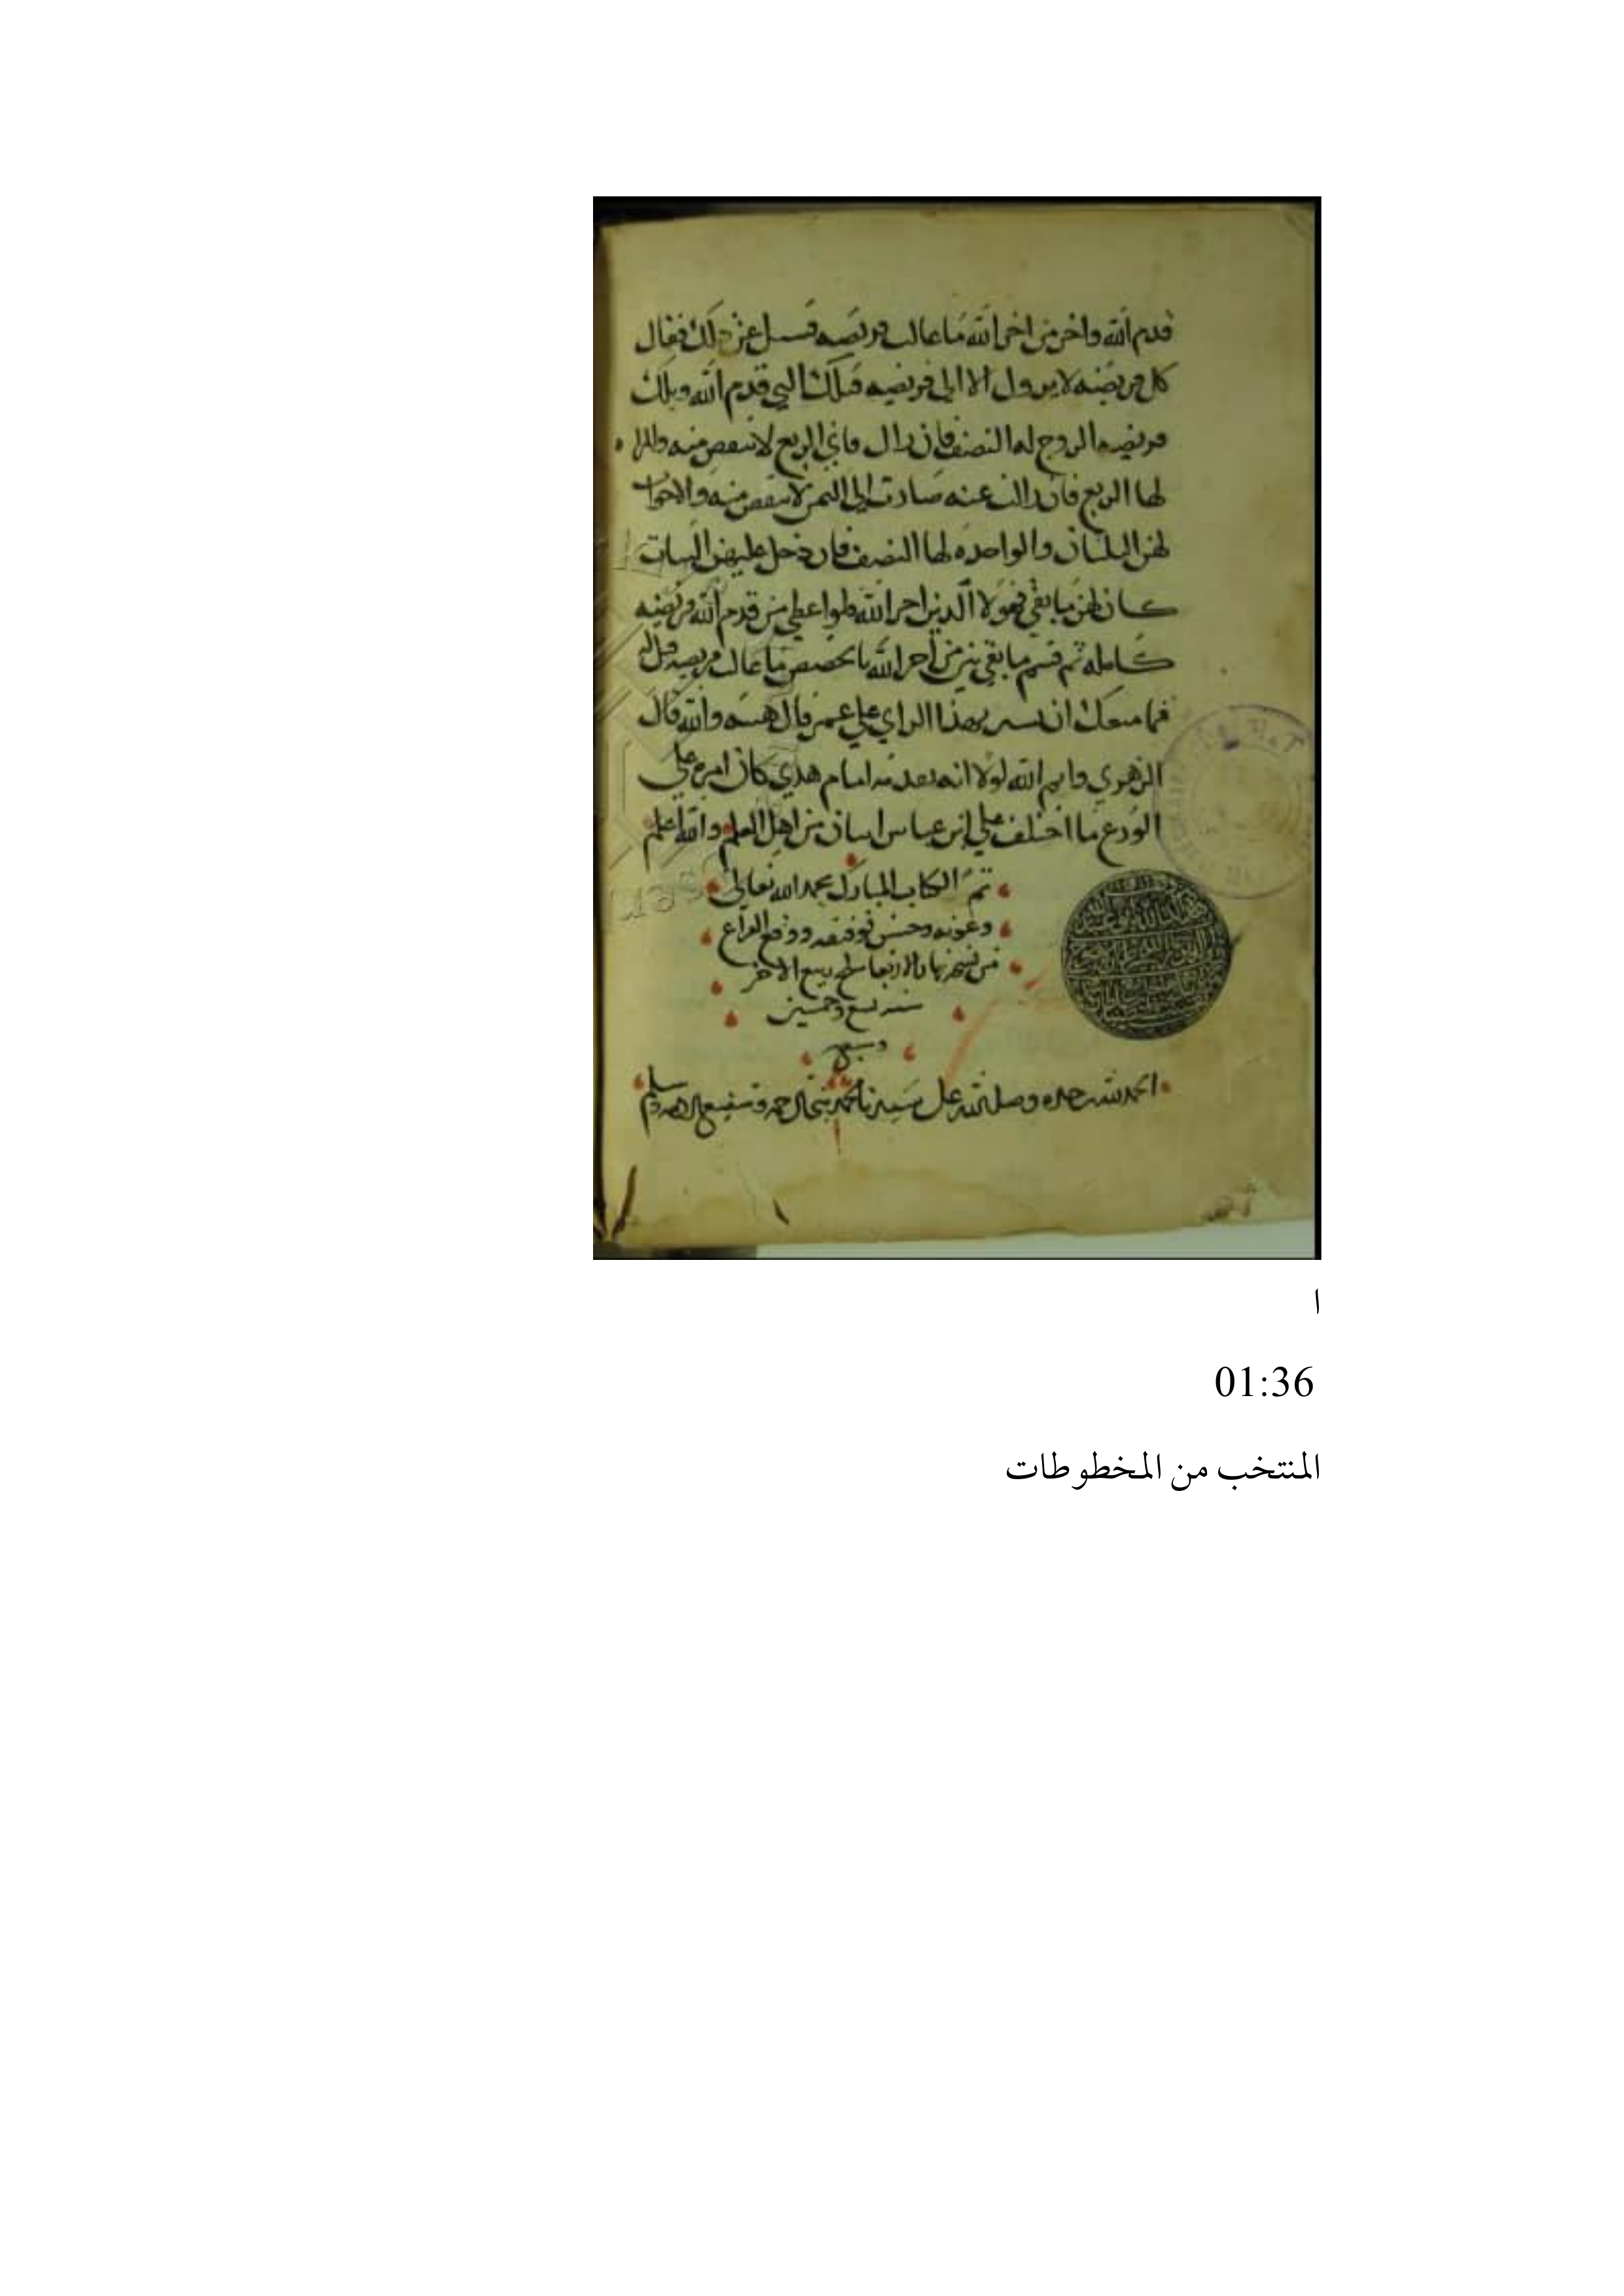 قدم الله واخر من اخر الله ما عالت فريضه فسئل عن ذلك فقال
كل فريضه لا يزول الا الى فريضه فتلك التي قدم الله وتلك
فريضه الزوج له النصف فان زال فالى الربع لا ينقص منه والمراه
لها الربع فان زالت عنه صارت الى الثمن لا ينقص منه والاخوات
لهن الثلثان والواحده لها النصف فان دخل عليهن البنات
كان لهن ما بقي فهولا الذين اخر الله فلو اعطي من قدم الله فريضه
كامله ثم قسم ما بقي بين من اخر الله بالحصص ما عالت فريضه قال له
فما منعك ان تشير بهذا الراي على عمر قال هبته والله قال
الزهري وايم الله لولا انه تقدمه امام هدي كان امره على
الورع ما اختلف على ابن عباس اثنان من اهل العلم والله اعلم
تم الكتاب المبارك بحمد الله تعالى
وعونه وحسن توفيقه ووقع الفراغ
من نسخه نهار الاربعا ربيع الاخر
سنه وخمسين
وسبع
الحمد لله وحده وصلى الله على سيدنا محمد نبي الرحمه وشفيع الامه وسلم
ا
01:36
المنتخب من المخطوطات